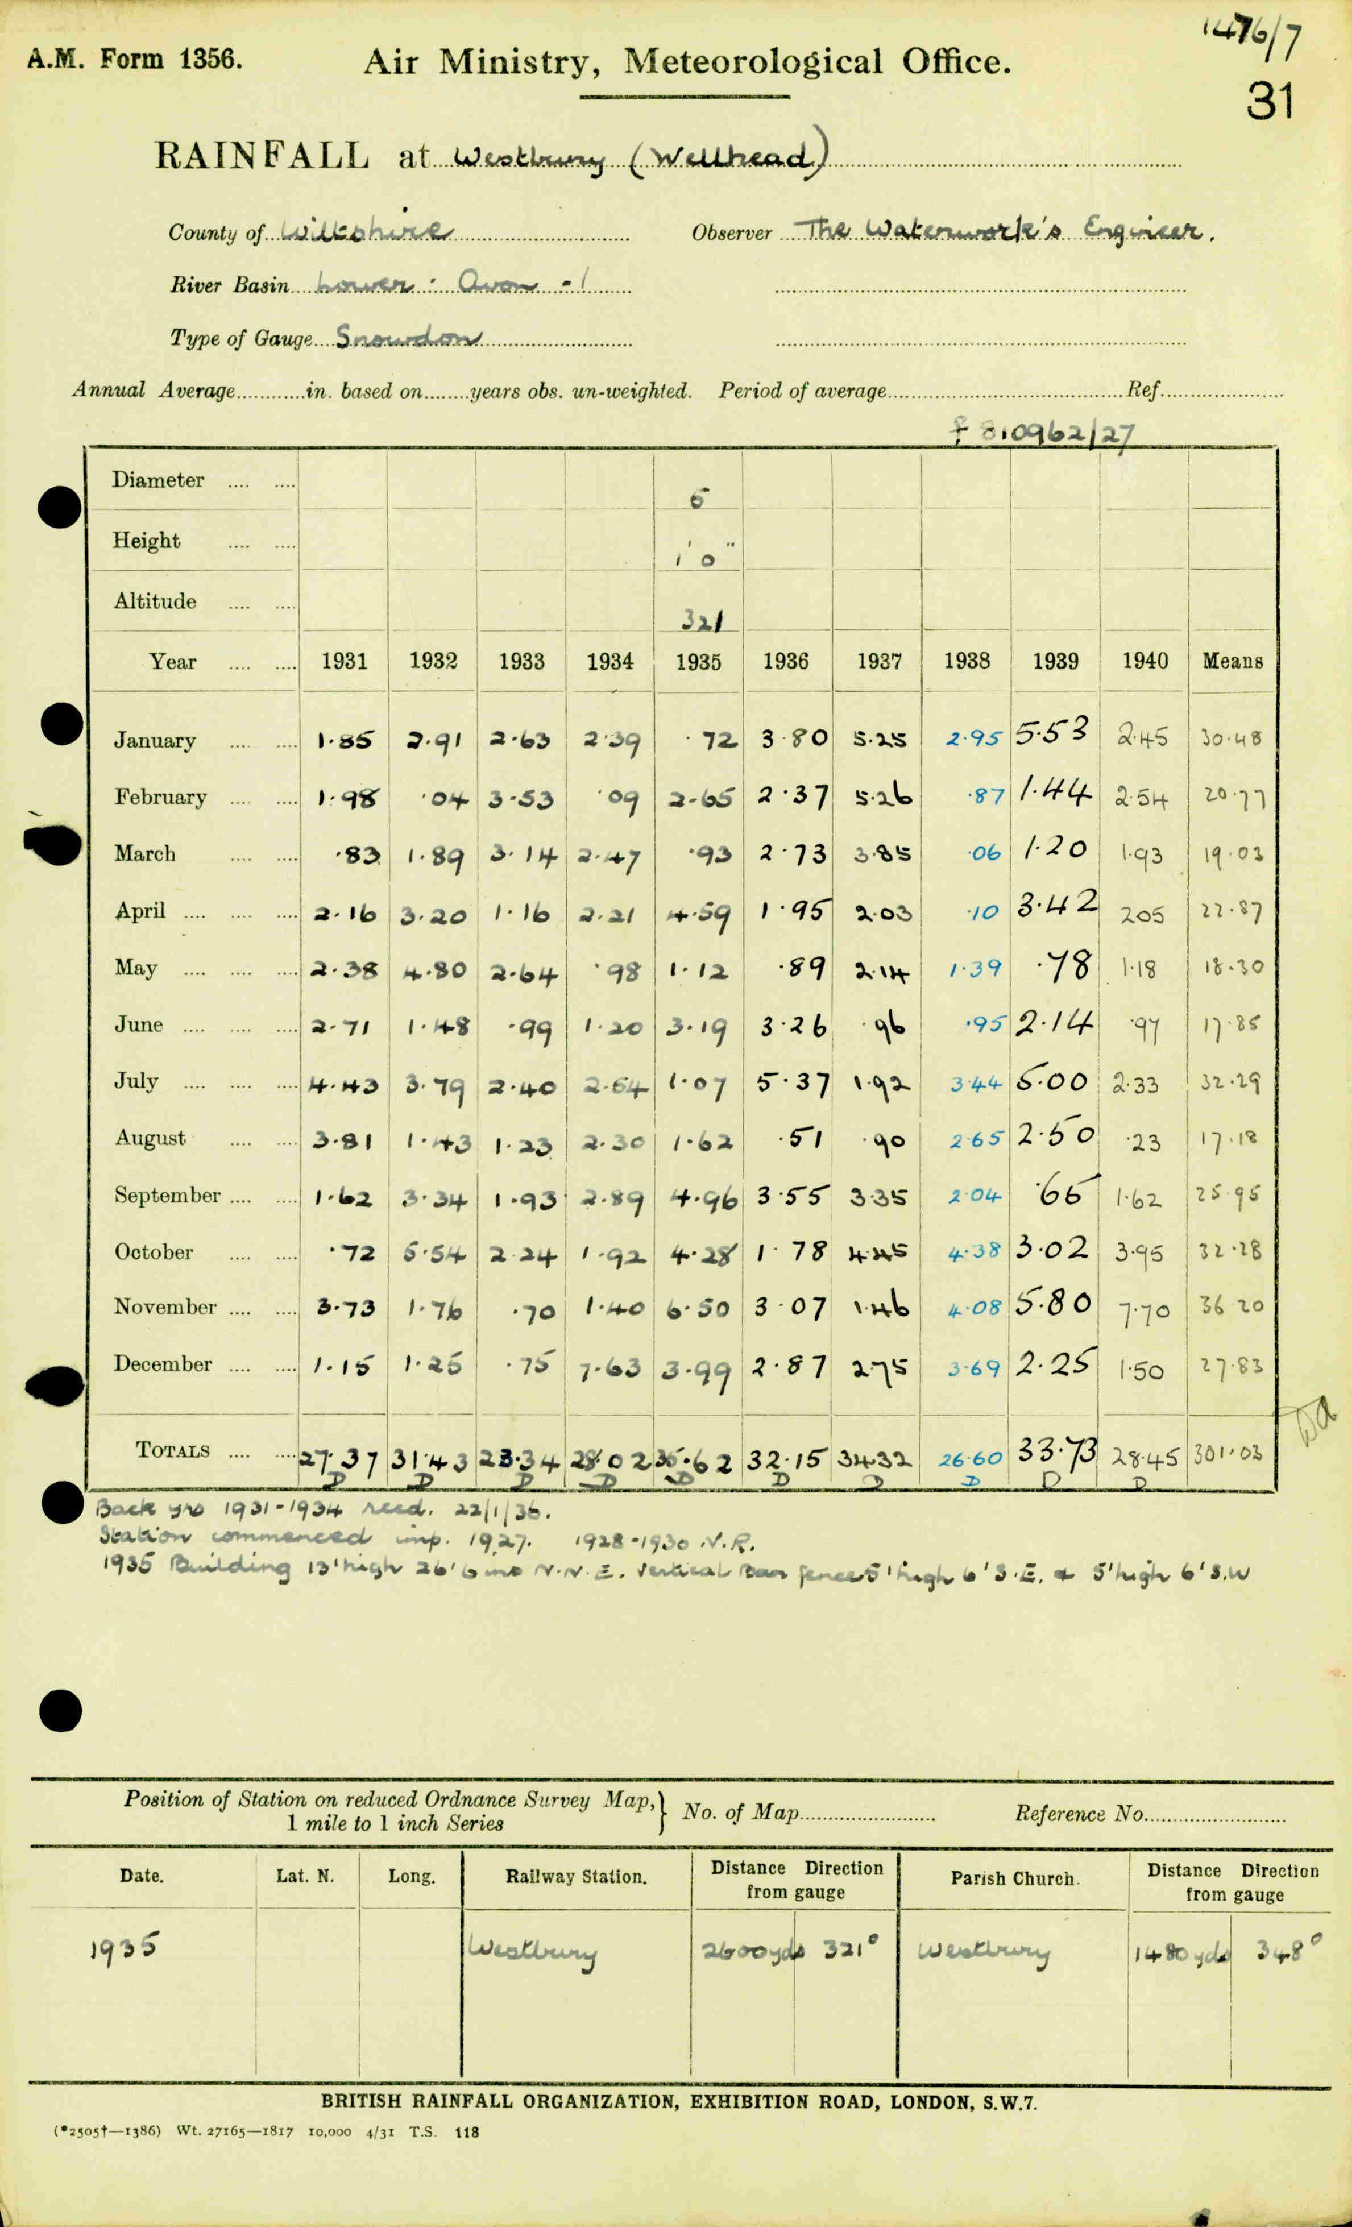 1476/7
31
A.M. Form 1356. Air Ministry, Meteorological Office.
RAINFALL at Westbury (Wellhead)
County of Wiltshire Observer The Waterwork's Engineer.
River Basin Lower · Avon - 1
Type of Gauge Snowdon
Annual Average in. based on years obs. un-weighted. Period of average Ref.
f 810962/27
Diameter 5
Height 1' 0"
Altitude 321
Year 1931 1932 1933 1934 1935 1936 1937 1938 1939 1940 Means
January 1.85 2.91 2.63 2.39 .72 3.80 5.25 2.95 5.53 2.45 30.48
February 1.98 .04 3.53 .09 2.65 2.37 5.26 .87 1.44 2.54 20.77
March .83 1.89 3.14 2.47 .93 2.73 3.85 .06 1.20 1.93 19.03
April 2.16 3.20 1.16 2.21 4.59 1.95 2.03 .10 3.42 205 22.87
May 2.38 4.80 2.64 .98 1.12 .89 2.14 1.39 .78 1.18 18.30
June 2.71 1.48 .99 1.20 3.19 3.26 .96 .95 2.14 .97 17.85
July 4.43 3.79 2.40 2.54 1.07 5.37 1.92 3.44 5.00 2.33 32.29
August 3.81 1.43 1.23 2.30 1.62 .51 .90 2.65 2.50 .23 17.18
September 1.62 3.34 1.93 2.89 4.96 3.55 3.35 2.04 .65 1.62 25.95
October .72 5.54 2.24 1.92 4.28 1.78 4.45 4.38 3.02 3.95 32.28
November 3.73 1.76 .70 1.40 6.50 3.07 1.46 4.08 5.80 7.70 36.20
December 1.15 1.25 .75 7.63 3.99 2.87 2.75 3.69 2.25 1.50 27.83
TOTALS 27.37 31.43 23.34 28.02 35.62 32.15 34.32 26.60 33.73 28.45 301.03
D D D D D D D D D D
Back yrs 1931-1934 recd. 22/1/36.
Station commenced imp. 1927. 1928-1930 N.R.
1935 Building 13' high 26' 6 ins N.N.E. Vertical Bar fences 5' high 6' S.E. & 5' high 6' S.W
Position of Station on reduced Ordnance Survey Map, } No. of Map Reference No.
1 mile to 1 inch Series
Date. Lat. N. Long. Railway Station. Distance Direction from gauge Parish Church. Distance Direction from gauge
1935 Westbury 2600 yds 321° Westbury 1480 yds 348°
BRITISH RAINFALL ORGANIZATION, EXHIBITION ROAD, LONDON, S.W.7.
(*2505†—1386) Wt. 27165—1817 10,000 4/31 T.S. 118